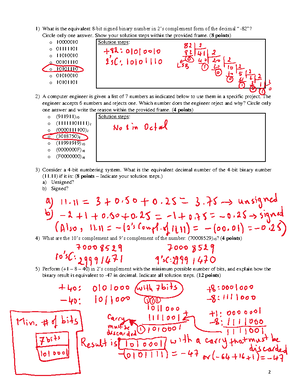 1) What is the equivalent 8-bit signed binary number in 2's complement form of the decimal "-82"?
Circle only one answer. Show your solution steps within the provided frame. (8 points)
Solution steps:
+82: 01010010
2'sC: 10101110
LSB
2) A computer engineer is given a list of 7 numbers as indicated below to use them in a specific project. The
engineer accepts 6 numbers and rejects one. Which number does the engineer reject and why? Circle only
one answer and write the reason within the provided frame. (4 points)
No 8 in Octal
3) Consider a 4-bit numbering system. What is the equivalent decimal number of the 4-bit binary number
(11.11) if it is: (8 points – Indicate your solution steps.)
a) Unsigned?
b) Signed?
a) 11.11 = 3 + 0.50 + 0.25 = 3.75 → unsigned
b) -2 + 1 + 0.50 + 0.25 = -1 + 0.75 = -0.25 → signed
(Also, 11.11 = - (2's comp of 11.11) = - (00.01) = -0.25)
4) What are the 10's complement and 9's complement of the number (70008529)₁₀? (4 points)
70008529
10'sC: 29991471
70008529
9'sC: 29991470
5) Perform (+1 – 8 – 40) in 2's complement with the minimum possible number of bits, and explain how the
binary result is equivalent to -47 in decimal. Indicate all solution steps. (12 points)
+40: 0101000 with 7 bits
-40: 1011000
+8: 0001000
-8: 1111000
+1: 0000001
-8: 1111000
Min. # of bits
7 bits
1010001
carry must be discarded
Result is 1010001 with a carry that must be discarded
- (0101111) = -47 or (-64+16+1) = -47
2